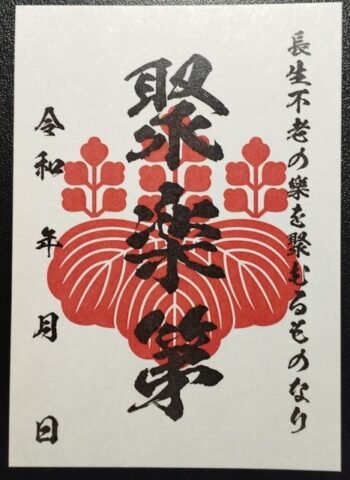 長生不老の樂を聚むるものなり
聚楽第
令和 年 月 日